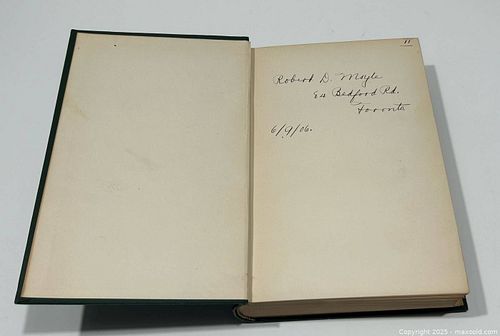 11
Robert D.
Bedford Rd.
Toronto
6/9/06.
Copyright 2025 - maxsold.com